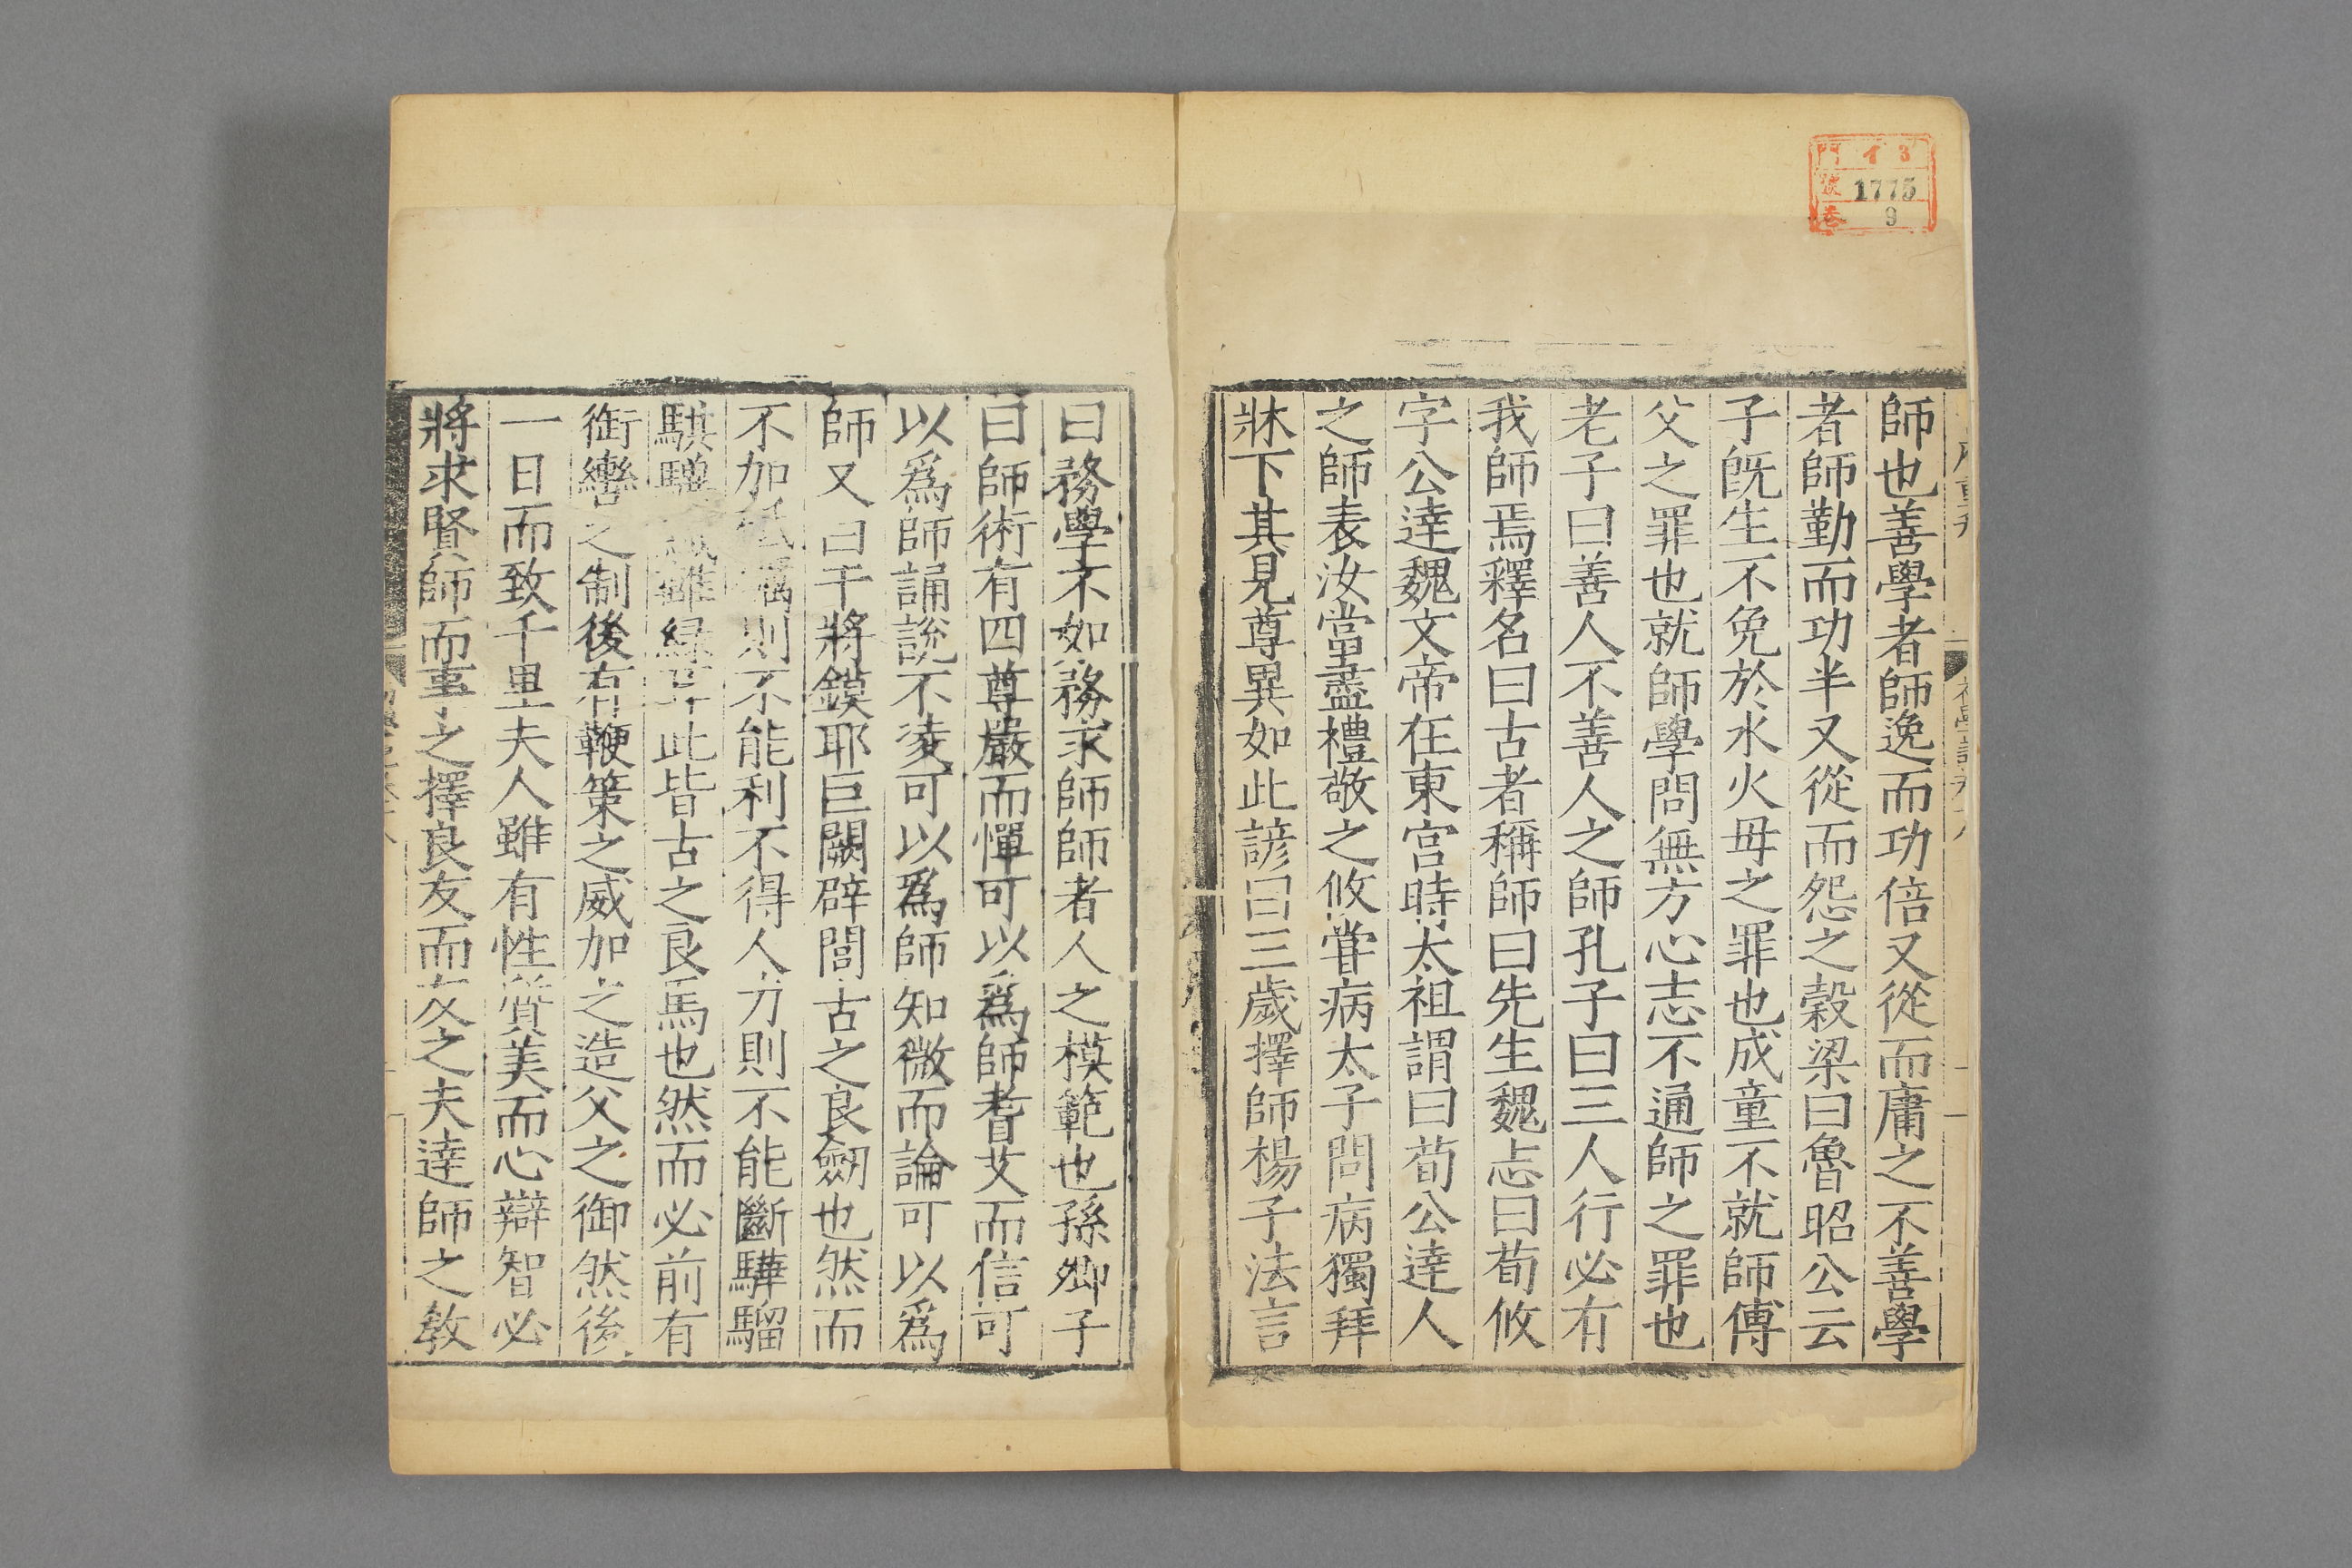 師也善學者師逸而功倍又從而庸之不善學
者師勤而功半又從而怨之穀梁曰魯昭公云
子旣生不免於水火毋之罪也成童不就師傅
父之罪也就師學問無方心志不通師之罪也
老子曰善人不善人之師孔子曰三人行必有
我師焉釋名曰古者稱師曰先生魏志曰荀攸
字公達魏文帝在東宫時太祖謂曰荀公達人
之師表汝當盡禮敬之攸甞病太子問病獨拜
牀下其見尊異如此諺曰三歲擇師楊子法言
曰務學不如務求師師者人之模範也孫卿子
曰師術有四尊嚴而憚可以爲師耆艾而信可
以爲師誦說不淩可以爲師知微而論可以爲
師又曰干將鏌耶巨闕辟閭古之良劒也然而
不加則不能利不得人力則不能斷驊騮
騏驥緑耳此皆古之良馬也然而必前有
銜轡之制後有鞭策之威加之造父之御然後
一日而致千里夫人雖有性質美而心辯智必
將求賢師而事之擇良友而友之夫達師之敎
1775
9